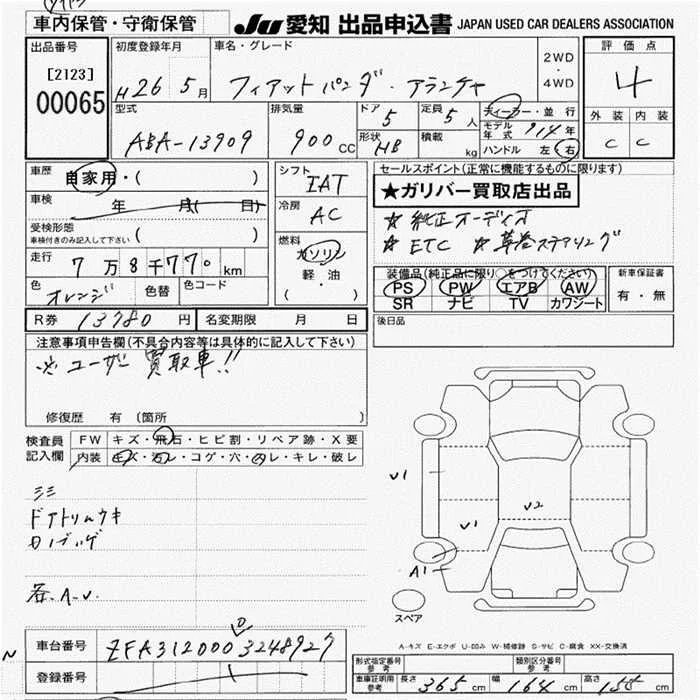 車内保管・守衛保管
JU 愛知 出品申込書 JAPAN USED CAR DEALERS ASSOCIATION
出品番号 [2123] 00065
初度登録年月 H26 5月
車名・グレード フィアットパンダ・アランチャ
2WD・4WD
評価点 4
外装 内装
C C
型式 ABA-13909
排気量 900 CC
ドア 5
形状 HB
定員 5 人
積載 kg
ディーラー・並行
モデル年式 年
ハンドル 左・右
車歴 自家用・( )
車検 年 月( 日)
受検形態 車検付きのみ記入して下さい ( )
走行 7万8千770km
色 オレンジ 色替 色コード
シフト IAT
冷房 AC
燃料 ガソリン 軽・油 ( )
セールスポイント(正常に機能するものに限ります)
★ガリバー買取店出品
☆ 純正オーディオ
☆ ETC ☆ 革巻ステアリング
装備品(純正品に限り○をつけてください)
PS PW エアB AW
SR ナビ TV カワシート
新車保証書 有・無
R券 13780 円 名変期限 月 日
後日品
注意事項申告欄(不具合内容等は具体的に記入して下さい)
※ユーザー買取車!!
修復歴 有 〔箇所 〕
検査員記入欄
FW キズ・飛石・ヒビ割・リペア跡・X要
内装 キズ・汚レ・コゲ・穴・スレ・キレ・破レ
ミミ
ドアトリムウキ
各A.U.
U1
U1
U2
A1
スペア
A-キズ E-エクボ U-凹み W-補修跡 S-サビ C-腐食 XX-交換済
車台番号 ZFA3120003248927
登録番号
形式指定番号 参考 類別区分番号 参考
車庫証明用 参考 長さ 365 cm 幅 164 cm 高さ 155 cm